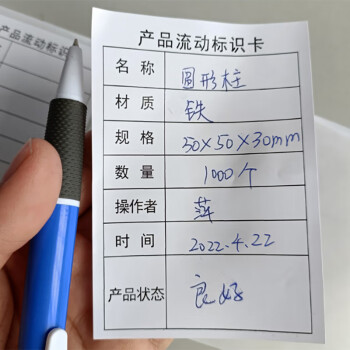 产品流动标识卡
名 称 圆形柱
材 质 铁
规 格 50×50×30mm
数 量 1000个
操作者 萍
时 间 2022.4.22
产品状态 良好
产品流动标识